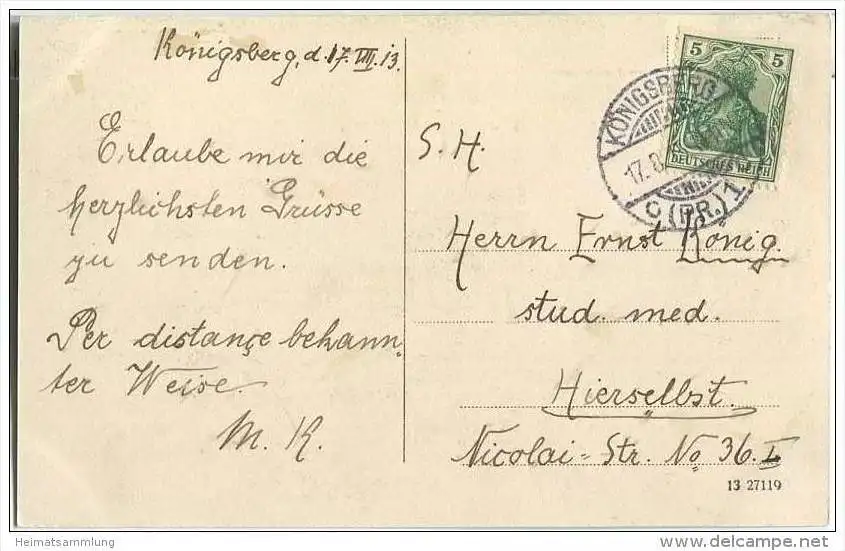 Königsberg, d. 17. VIII. 13.
Erlaube mir die
herzlichsten Grüsse
zu senden.
Per distançe bekann-
ter Weise.
M. K.
5 5
DEUTSCHES REICH
KÖNIGSBERG
17. 8.
C (PR.) 1
S. H.
Herrn Ernst König.
stud. med.
Hierselbst.
Nicolai-Str. No 36. I
13 27119
Heimatsammlung
www.delcampe.net